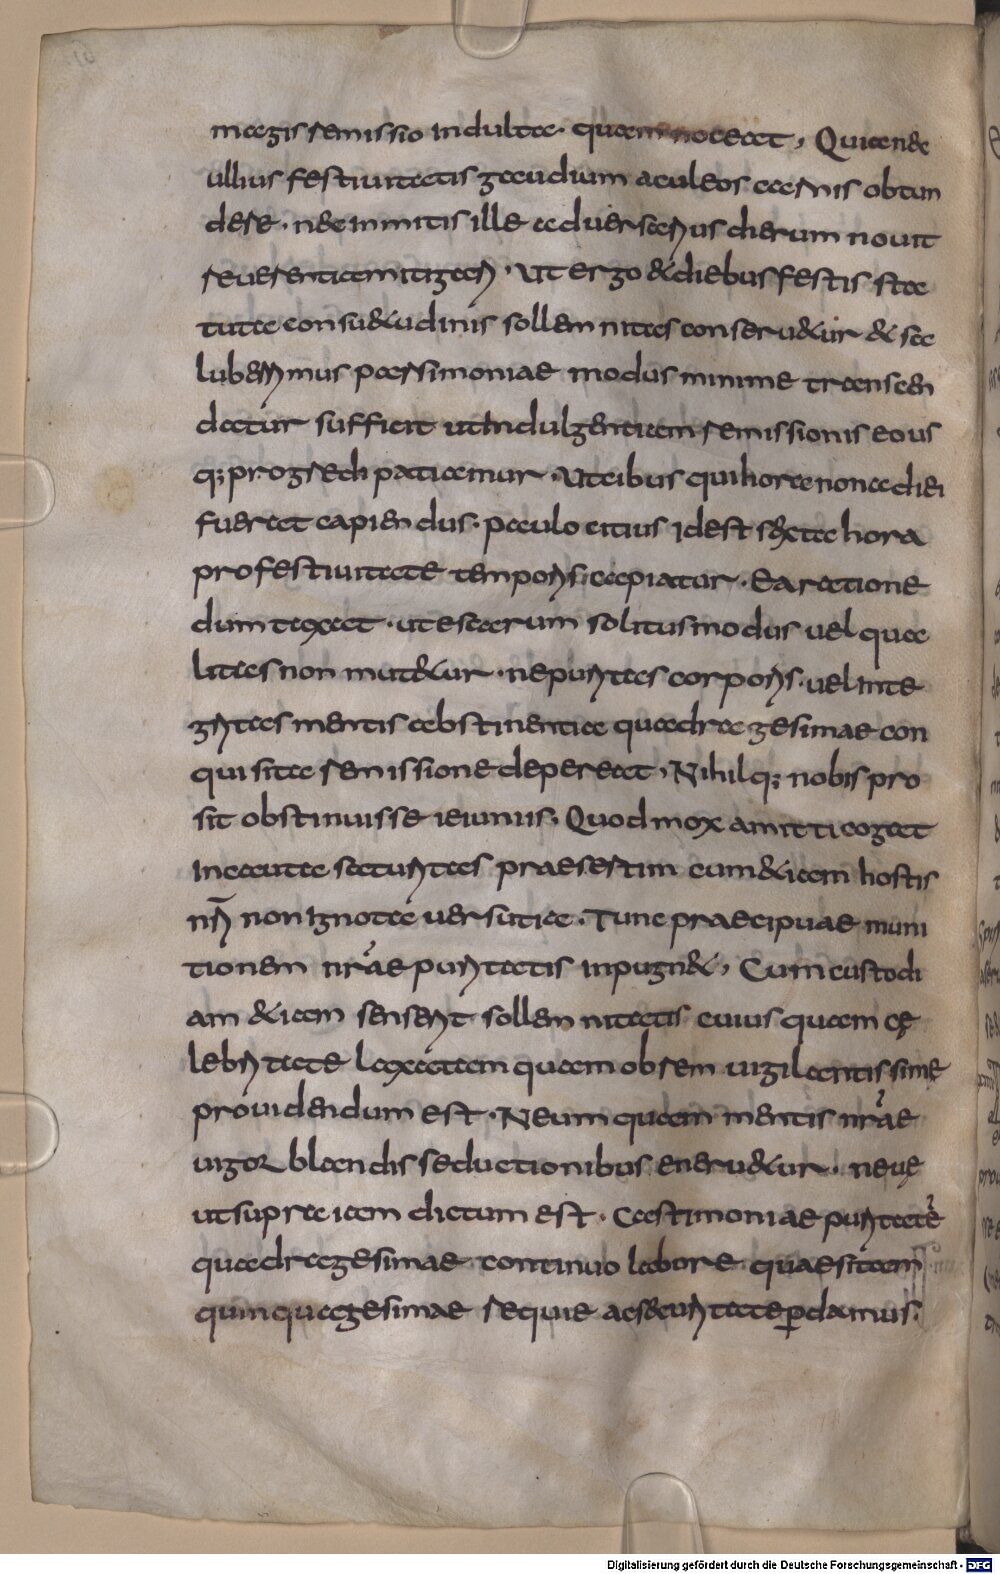 magis remissio indulta· quam noceat, Qui tande
ullius festiuitatis gaudium aculeos carnis obtun
dere· nec inmitis ille aduersarius dierum nouit
reuerentia mitigari· Ut ergo & diebus festis sta
tuta consu&udinis sollemnitas conseru&ur & sa
luberrimus parsimoniae modus minime transcen
datur sufficit ut indulgentiam remissionis eous
q; progredi patiamur· Ut cibus qui hora nona diei
fuerat capiendus· paulo citius idest sexta hora
pro festiuitate temporis capiatur· Ea ratione
dumtaxat· ut escarum solitus modus uel qua
litas non mut&ur· ne puritas corporis· uel inte
gritas mentis abstinentia quadragesimae con
quisita remissione depereat, Nihilq; nobis pro
sit obstinuisse ieiuniis· Quod mox amitti cogat
incauta saturitas praesertim cum &iam hostis
nri non ignota uersutia· Tunc praecipuae muni
tionem nrae puritatis inpugn&, Cum custodi
am &iam senserit sollemnitatis cuius quam cę
lebritate laxatam quam obrem uigilantissimę
prouidendum est· Neumquam mentis nrae
uigor blandis seductionibus eneru&ur· neuę
ut supra iam dictum est· Castimoniae puritatē
quadragesimae continuo labore quaesitam
quinquagesimae requie ac securitate pdamus·
Digitalisierung gefördert durch die Deutsche Forschungsgemeinschaft - DFG